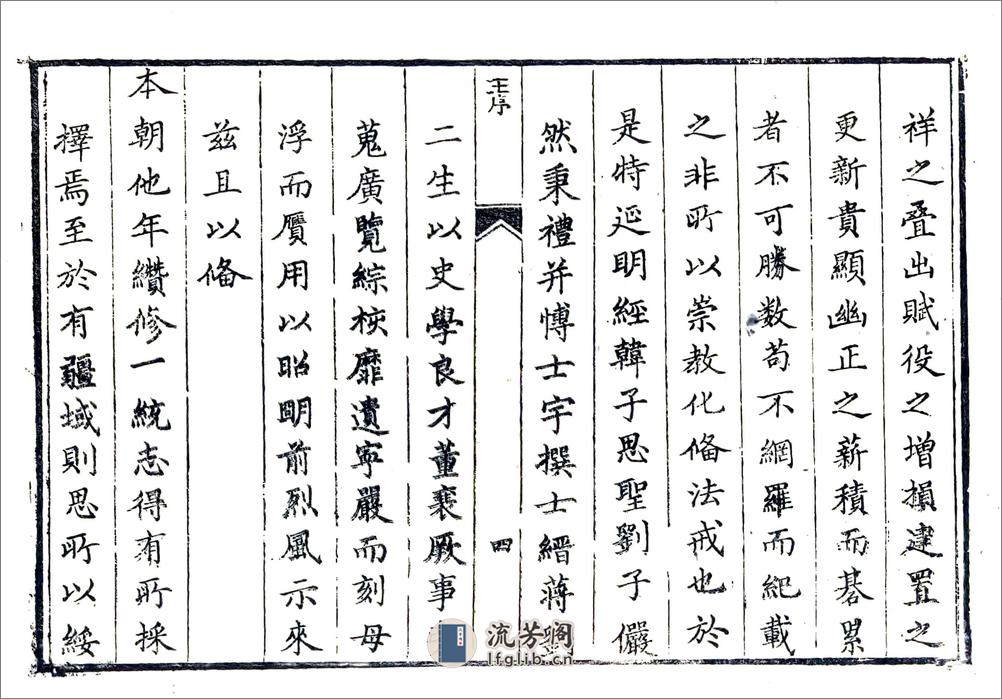 祥之疊出賦役之增損建置之
更新貴顯幽正之薪積而碁累
者不可勝数苟不網羅而紀載
之非所以崇教化俻法戒也於
是特延明經韓子思聖劉子儼
然秉禮并愽士宇撰士縉蔣
王序
四
二生以史學良才董襄厥事
蒐廣覽綜核靡遺寜嚴而刻毋
浮而贋用以昭明前烈風示來
兹且以俻
本朝他年纘修一統志得有所採
擇焉至於有疆域則思所以綏
流芳阁
lfglib.cn